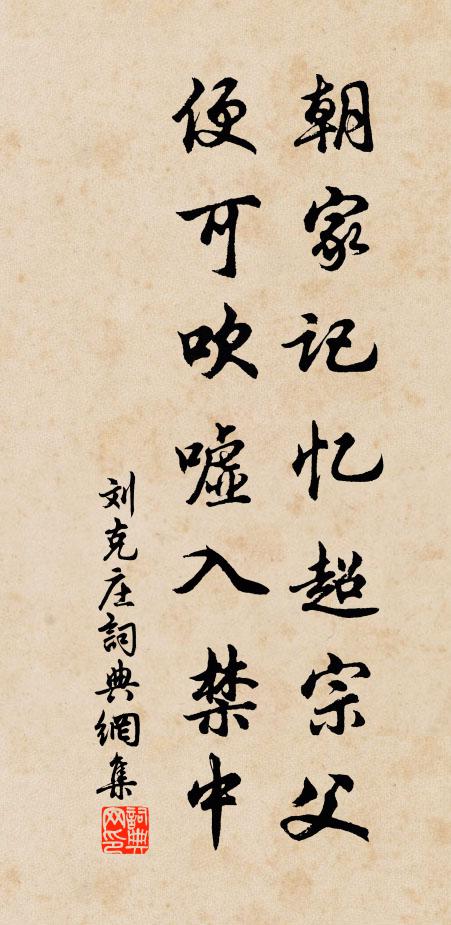 朝家记忆超宗父
便可吹嘘入禁中
刘克庄詞典網集
詞典网印